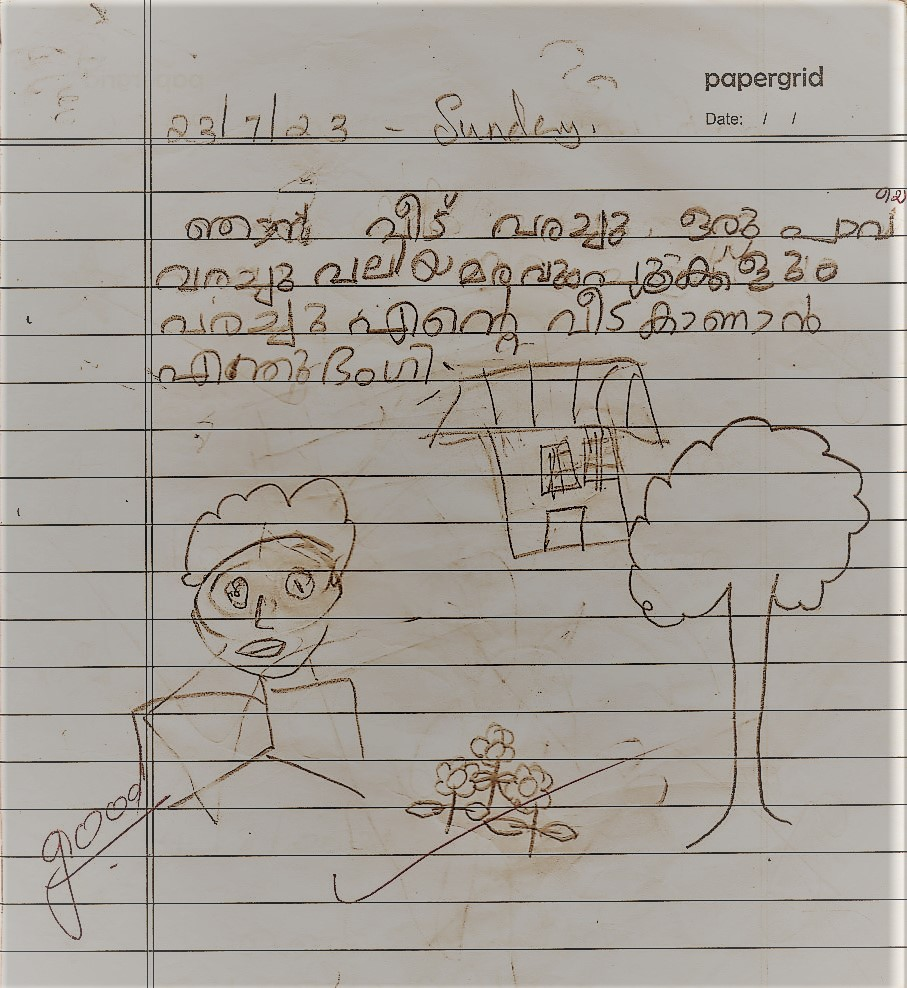 papergrid
Date: / /
23/7/23 - Sunday.
ഞാൻ വീട് വരച്ചു. ഒരു പാവ
വരച്ചു വലിയ മരവും പൂക്കളും
വരച്ചു എന്റെ വീട കാണാൻ
എന്തുഭംഗി.
good